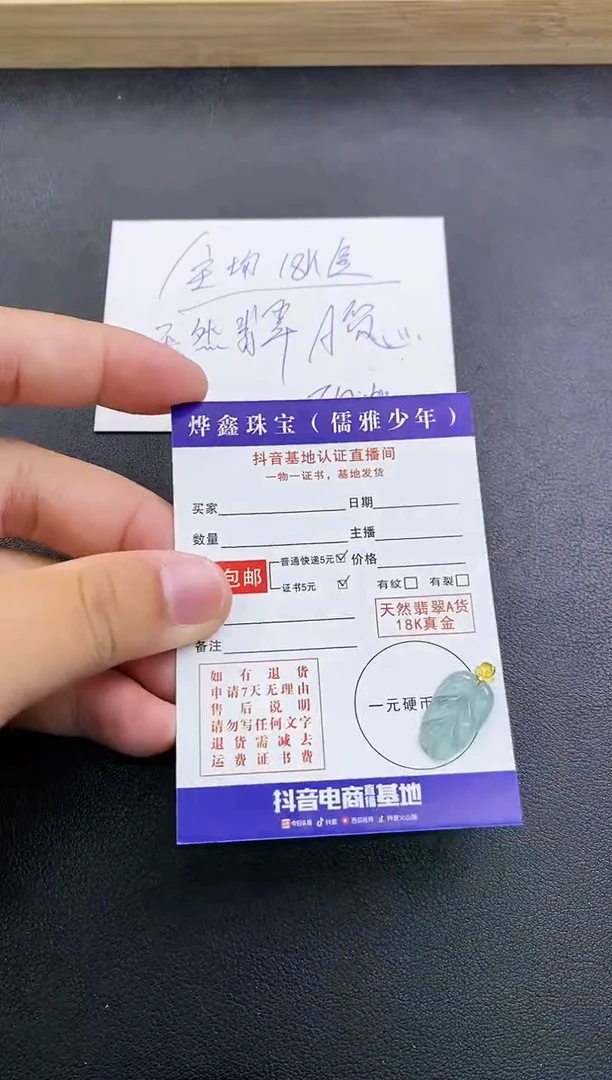 全场 18K金
天然翡翠 A货
烨鑫珠宝（儒雅少年）
抖音基地认证直播间
一物一证书，基地发货
买家 日期
数量 主播
包邮 普通快递5元☑ 价格
证书5元 ☑ 有纹□ 有裂□
天然翡翠A货
18K真金
备注
如有退货
申请7天无理由
售后说明
请勿写任何文字
退货需减去
运费证书费
一元硬币
抖音电商直播基地
今日头条 抖音 西瓜视频 抖音火山版